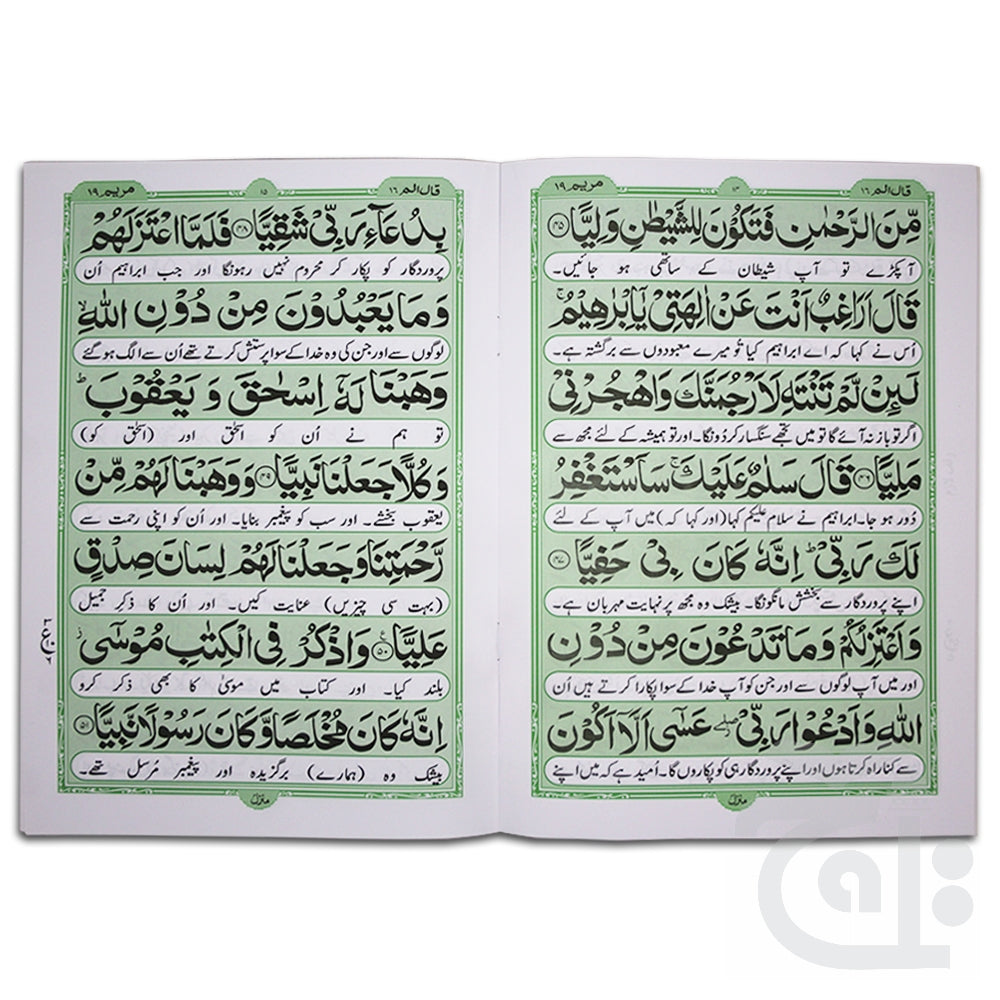 قال الم ۱۶
۱۴
مریم ۱۹
مِّنَ الرَّحْمٰنِ فَتَكُوْنَ لِلشَّيْطٰنِ وَلِيًّا ﴿۴۵﴾
آ پکڑے تو آپ شیطان کے ساتھی ہو جائیں۔
قَالَ اَرَاغِبٌ اَنْتَ عَنْ اٰلِهَتِيْ يٰۤاِبْرٰهِيْمُ ۚ
اُس نے کہا کہ اے ابراہیم کیا تُو میرے معبودوں سے برگشتہ ہے۔
لَئِنْ لَّمْ تَنْتَهِ لَاَرْجُمَنَّكَ وَاهْجُرْنِيْ
اگر تو باز نہ آئے گا تو میں تجھے سنگسار کر دُونگا۔ اور تو ہمیشہ کے لئے مجھ سے
مَلِيًّا ﴿۴۶﴾ قَالَ سَلٰمٌ عَلَيْكَ ۚ سَاَسْتَغْفِرُ
دُور ہو جا۔ ابراہیم نے سلام علیکم کہا (اور کہا کہ) میں آپ کے لئے
لَكَ رَبِّيْ ؕ اِنَّهٗ كَانَ بِيْ حَفِيًّا ﴿۴۷﴾
اپنے پروردگار سے بخشش مانگونگا۔ بیشک وہ مجھ پر نہایت مہربان ہے۔
وَاَعْتَزِلُكُمْ وَمَا تَدْعُوْنَ مِنْ دُوْنِ
اور میں آپ لوگوں سے اور جن کو آپ خدا کے سوا پکارا کرتے ہیں اُن
اللّٰهِ وَاَدْعُوْا رَبِّيْ ۖ عَسٰۤى اَلَّاۤ اَكُوْنَ
سے کنارہ کرتا ہوں اور اپنے پروردگار ہی کو پکاروں گا۔ اُمید ہے کہ میں اپنے
منزل
قال الم ۱۶
۱۵
مریم ۱۹
بِدُعَآءِ رَبِّيْ شَقِيًّا ﴿۴۸﴾ فَلَمَّا اعْتَزَلَهُمْ
پروردگار کو پکار کر محروم نہیں رہونگا اور جب ابراہیم اُن
وَمَا يَعْبُدُوْنَ مِنْ دُوْنِ اللّٰهِ ۙ
لوگوں سے اور جن کی وہ خدا کے سوا پرستش کرتے تھے اُن سے الگ ہو گئے
وَهَبْنَا لَهٗۤ اِسْحٰقَ وَ يَعْقُوْبَ ؕ
تو ہم نے اُن کو اسحٰق اور (اسحٰق کو)
وَكُلًّا جَعَلْنَا نَبِيًّا ﴿۴۹﴾ وَوَهَبْنَا لَهُمْ مِّنْ
یعقوب بخشے۔ اور سب کو پیغمبر بنایا۔ اور اُن کو اپنی رحمت سے
رَّحْمَتِنَا وَجَعَلْنَا لَهُمْ لِسَانَ صِدْقٍ
(بہت سی چیزیں) عنایت کیں۔ اور اُن کا ذکرِ جمیل
عَلِيًّا ﴿۵۰﴾ وَاذْكُرْ فِي الْكِتٰبِ مُوْسٰۤى ۫
بلند کیا۔ اور کتاب میں موسیٰ کا بھی ذکر کرو
اِنَّهٗ كَانَ مُخْلَصًا وَّكَانَ رَسُوْلًا نَّبِيًّا ﴿۵۱﴾
بیشک وہ (ہمارے) برگزیدہ اور پیغمبر مُرسل تھے۔
منزل